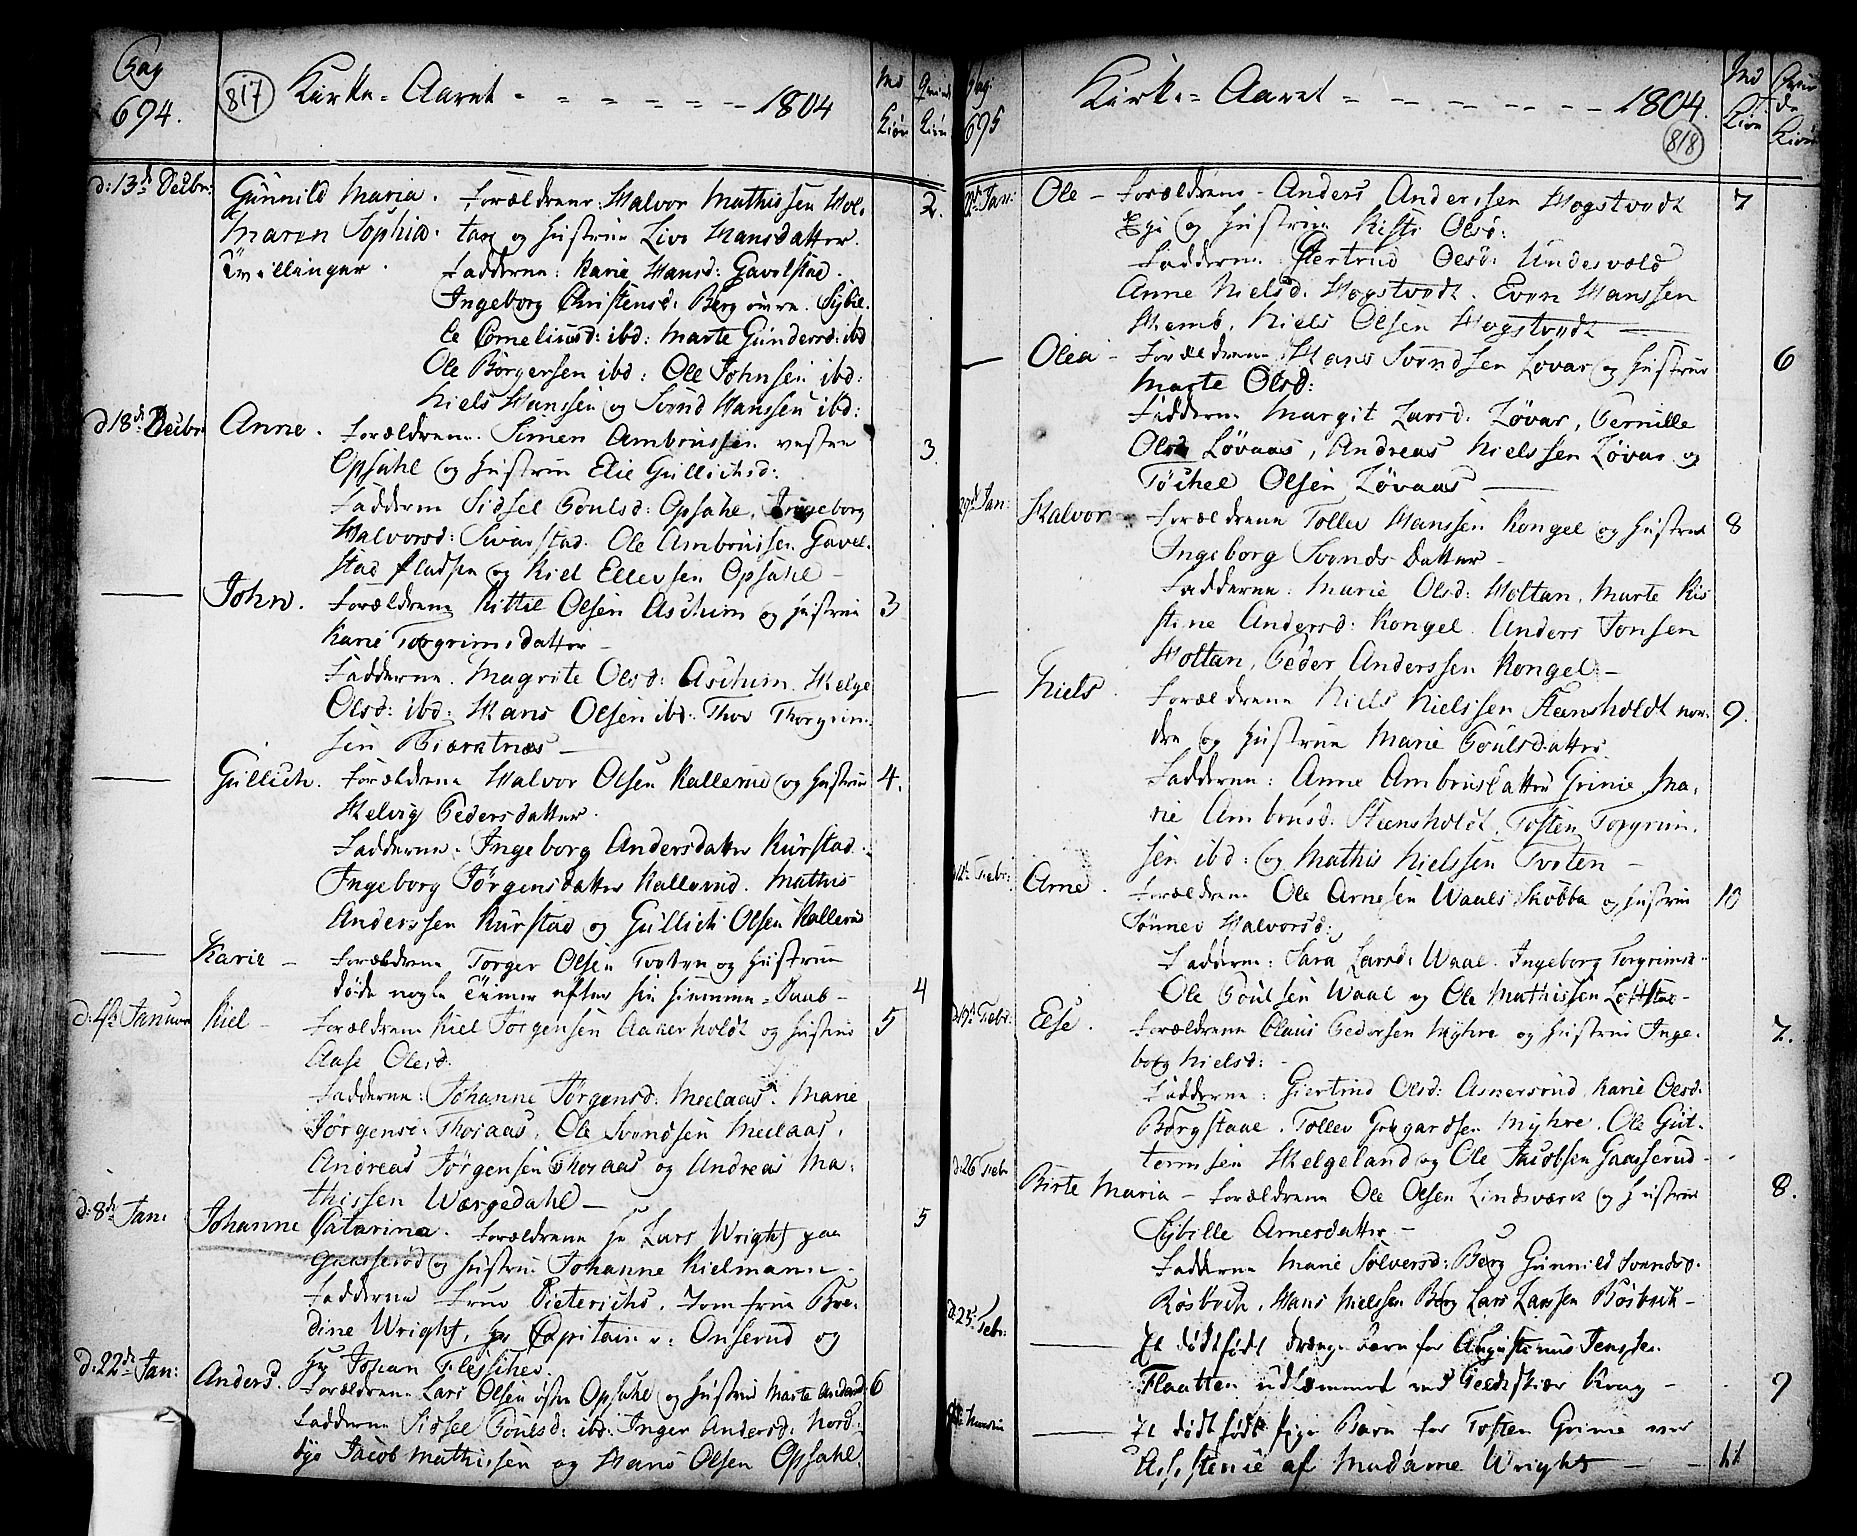 Pag
694.
817
Kirke-Aaret - - - - - - - 1804
Md
Kiøn
Qvinde
Kiøn
d: 13de Decbr:
Gunnild Maria. Forældrene: Halvor Mathissen Hol- 2.
Maren Sophia. tan og Hustrue Live Hansdatter.
Tvillinger. Fadderne: Karie Hansd: Gavelstad.
Ingeborg Christensd: Berg øvre. Sybil-
le Corneliusd: ibd: Marte Gundersd: ibd
Ole Børgersen ibd: Ole Johnsen ibd:
Niels Hanssen og Svend Hanssen ibd:
d 18de Decbr
Anne. Forældrene. Simen Ambrussen vestre 3.
Opsahl og Hustrue Elie Gullichsd:
Fadderne Sidsel Poulsd: Opsahl, Ingeborg
Halvorsd: Sivarstad. Ole Ambrussen Gavel-
stad Pladsen og Kiel Ellevsen Opsahl -
John. Forældrene Kittil Olsen Aschim og Hustrue 3
Karie Torgrimsdatter -
Fadderne. Magrite Olsd: Aschim. Helge
Olsd: ibd: Hans Olsen ibd: Thor Thorgrim-
sen Biæratnæs -
Gullich. Forældrene Halvor Olsen Kallerud og Hustrue 4.
Helvig Pedersdatter.
Fadderne. Ingeborg Andersdatter Kurstad.
Ingeborg Jørgensdatter Kallerud. Mathis
Anderssen Kurstad og Gullich Olsen Kallerud
Karie - Forældrene Torger Olsen Tveten og Hustrue
døde nogle Timer efter sin Hiemme-Daab - 4
d: 4de Januar
Kiel - Forældrene Kiel Jørgensen Aakerholdt og Hustrue 5
Aase Olesd.
Fadderne: Johanne Jørgensd: Meelaas. Marie
Jørgensd: Thoraas. Ole Svendsen Meelaas.
Andreas Jørgensen Thoraas og Andreas Ma-
thissen Wærgedahl -
d: 8de Jan:
Johanne Catarina. Forældrene Hr Lars Wright paa 5
Gaaserud og Hustrue Johanne Kielmann.
Fadderne Frue Dieterichs, Jomfrue Bre-
dine Wright, Hr Capitain v: Onserud og
Hr Johan Fleischer.
d: 22de Jan:
Anders. Forældrene Lars Olsen østre Opsahl og Hustrue Marte Andersd 6
Fadderne Sidsel Poulsd: ibd: Inger Andersd: Nord-
bye Jacob Mathissen og Hans Olsen Opsahl.
Pag:
695
Kirke-Aaret - - - - - - - 1804.
818
Md
Kiøn
Qvin
de
Kiøn
22de Jan:
Ole - Forældrene - Anders Anderssen Hogstvedt 7
Eye og Hustrue Kisti Olsd:
Fadderne Giertrud Olsd: Undesvold
Anne Nielsd: Hogstvedt. Even Hanssen
Hemb. Niels Olsen Hogstvedt -
Olea - Forældrene Hans Svendsen Lovar og Hustrue 6
Marte Olsd:
Fadderne Margit Larsd: Løvar, Pernille
Olsd Løvaas, Andreas Nielssen Løvar og
Tøchel Olsen Løvaas -
29de Jan:
Halvor. Forældrene Tollev Hanssen Kongel og Hustrue 8
Ingeborg Svends datter -
Fadderne: Marie Olsd: Holtan, Marte Ki-
stine Andersd: Kongel. Anders Jonsen
Holtan, Peder Anderssen Kongel -
Niels. Forældrene Niels Nielssen Steensholdt nor- 9.
dre og Hustrue Marie Poulsdatter
Fadderne: Anne Ambrusdatter Grinie. Ma-
rie Ambrusd: Steensholdt. Tosten Torgrim-
sen ibd: og Mathis Nielssen Tveten -
Febr:
Arne. Forældrene Ole Arnesen Waale Skobba og Hustrue 10
Sønnev Halvorsd:
Fadderne: Sara Larsd: Waal. Ingeborg Torgrimsd -
Ole Poulsen Waal og Ole Mathissen Loftstue -
d: 19de Febr:
Else. Forældrene Claus Pedersen Myhre og Hustrue Inge- 7.
borg Nielsd: -
Fadderne: Giertrud Olsd: Asmersrud, Karie Olsd:
Borgstaae. Tollev Gregardsen Myhre. Ole Gut-
tormsen Helgeland og Ole Jacobsen Gaasserud -
d: 26 Febr
Birte Maria - Forældrene Ole Olsen Lindsværk og Hustrue 8.
Sybille Arnesdatter -
Fadderne Marie Solversd: Berg Gunnild Svendsd.
Røsbech. Hans Nielssen Berg Lars Larssen Røsbech -
d: 25de Febr:
Et dødfødt drenge Barn for Augustinus Jens
Flaatten udtømmet ved Krag - 9
Et dødfødt pige Barn for Tosten Grinie ved
Assistence af Madame Wright - 11